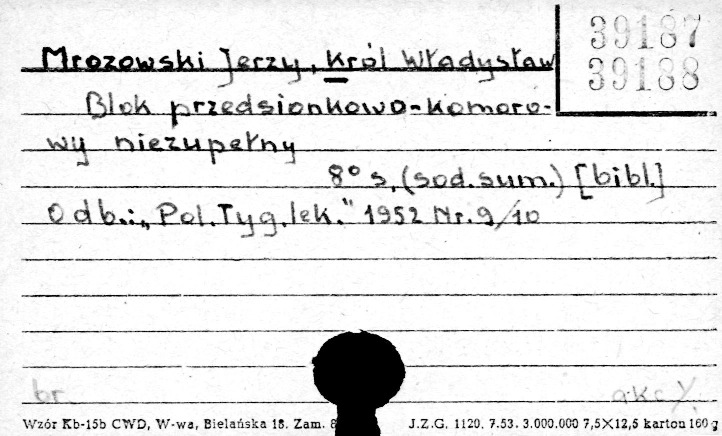 39187
39188
Mrozowski Jerzy, Król Władysław
Blok przedsionkowo-komoro-
wy niezupełny
8° s. (sod. sum.) [bibl.]
Odb.: "Pol. Tyg. lek." 1952 Nr. 9/10
br.
Wzór Kb-15b CWD, W-wa, Bielańska 18. Zam.
J.Z.G. 1120. 7.53. 3.000.000 7,5×12,5 karton 160 g